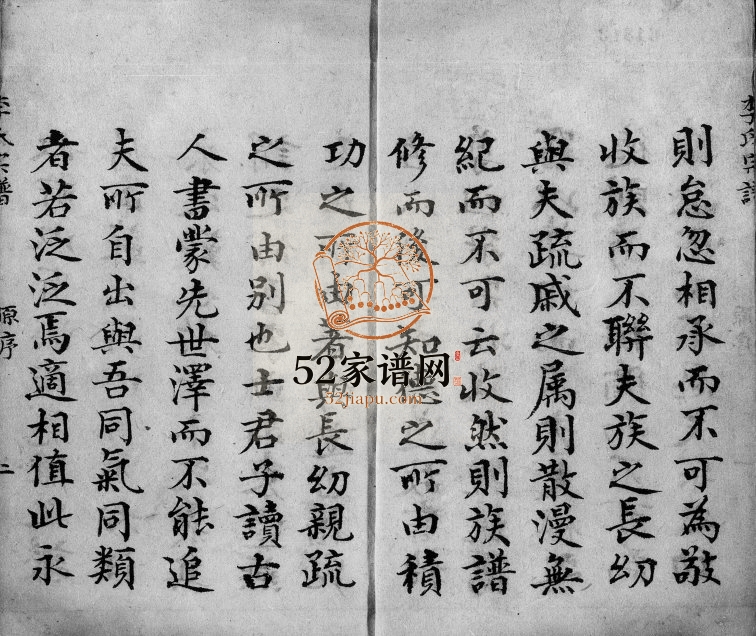 則怠忽相承而不可為敬
收族而不聯夫族之長幼
與夫疏戚之属則散漫無
紀而不可云收然則族譜
修而後可知德之所由積
功之所由著與長幼親疏
之所由别也士君子讀古
人書蒙先世澤而不能追
夫所自出與吾同氣同類
者若泛泛焉適相值此永
原序
二
52家谱网
52jiapu.com